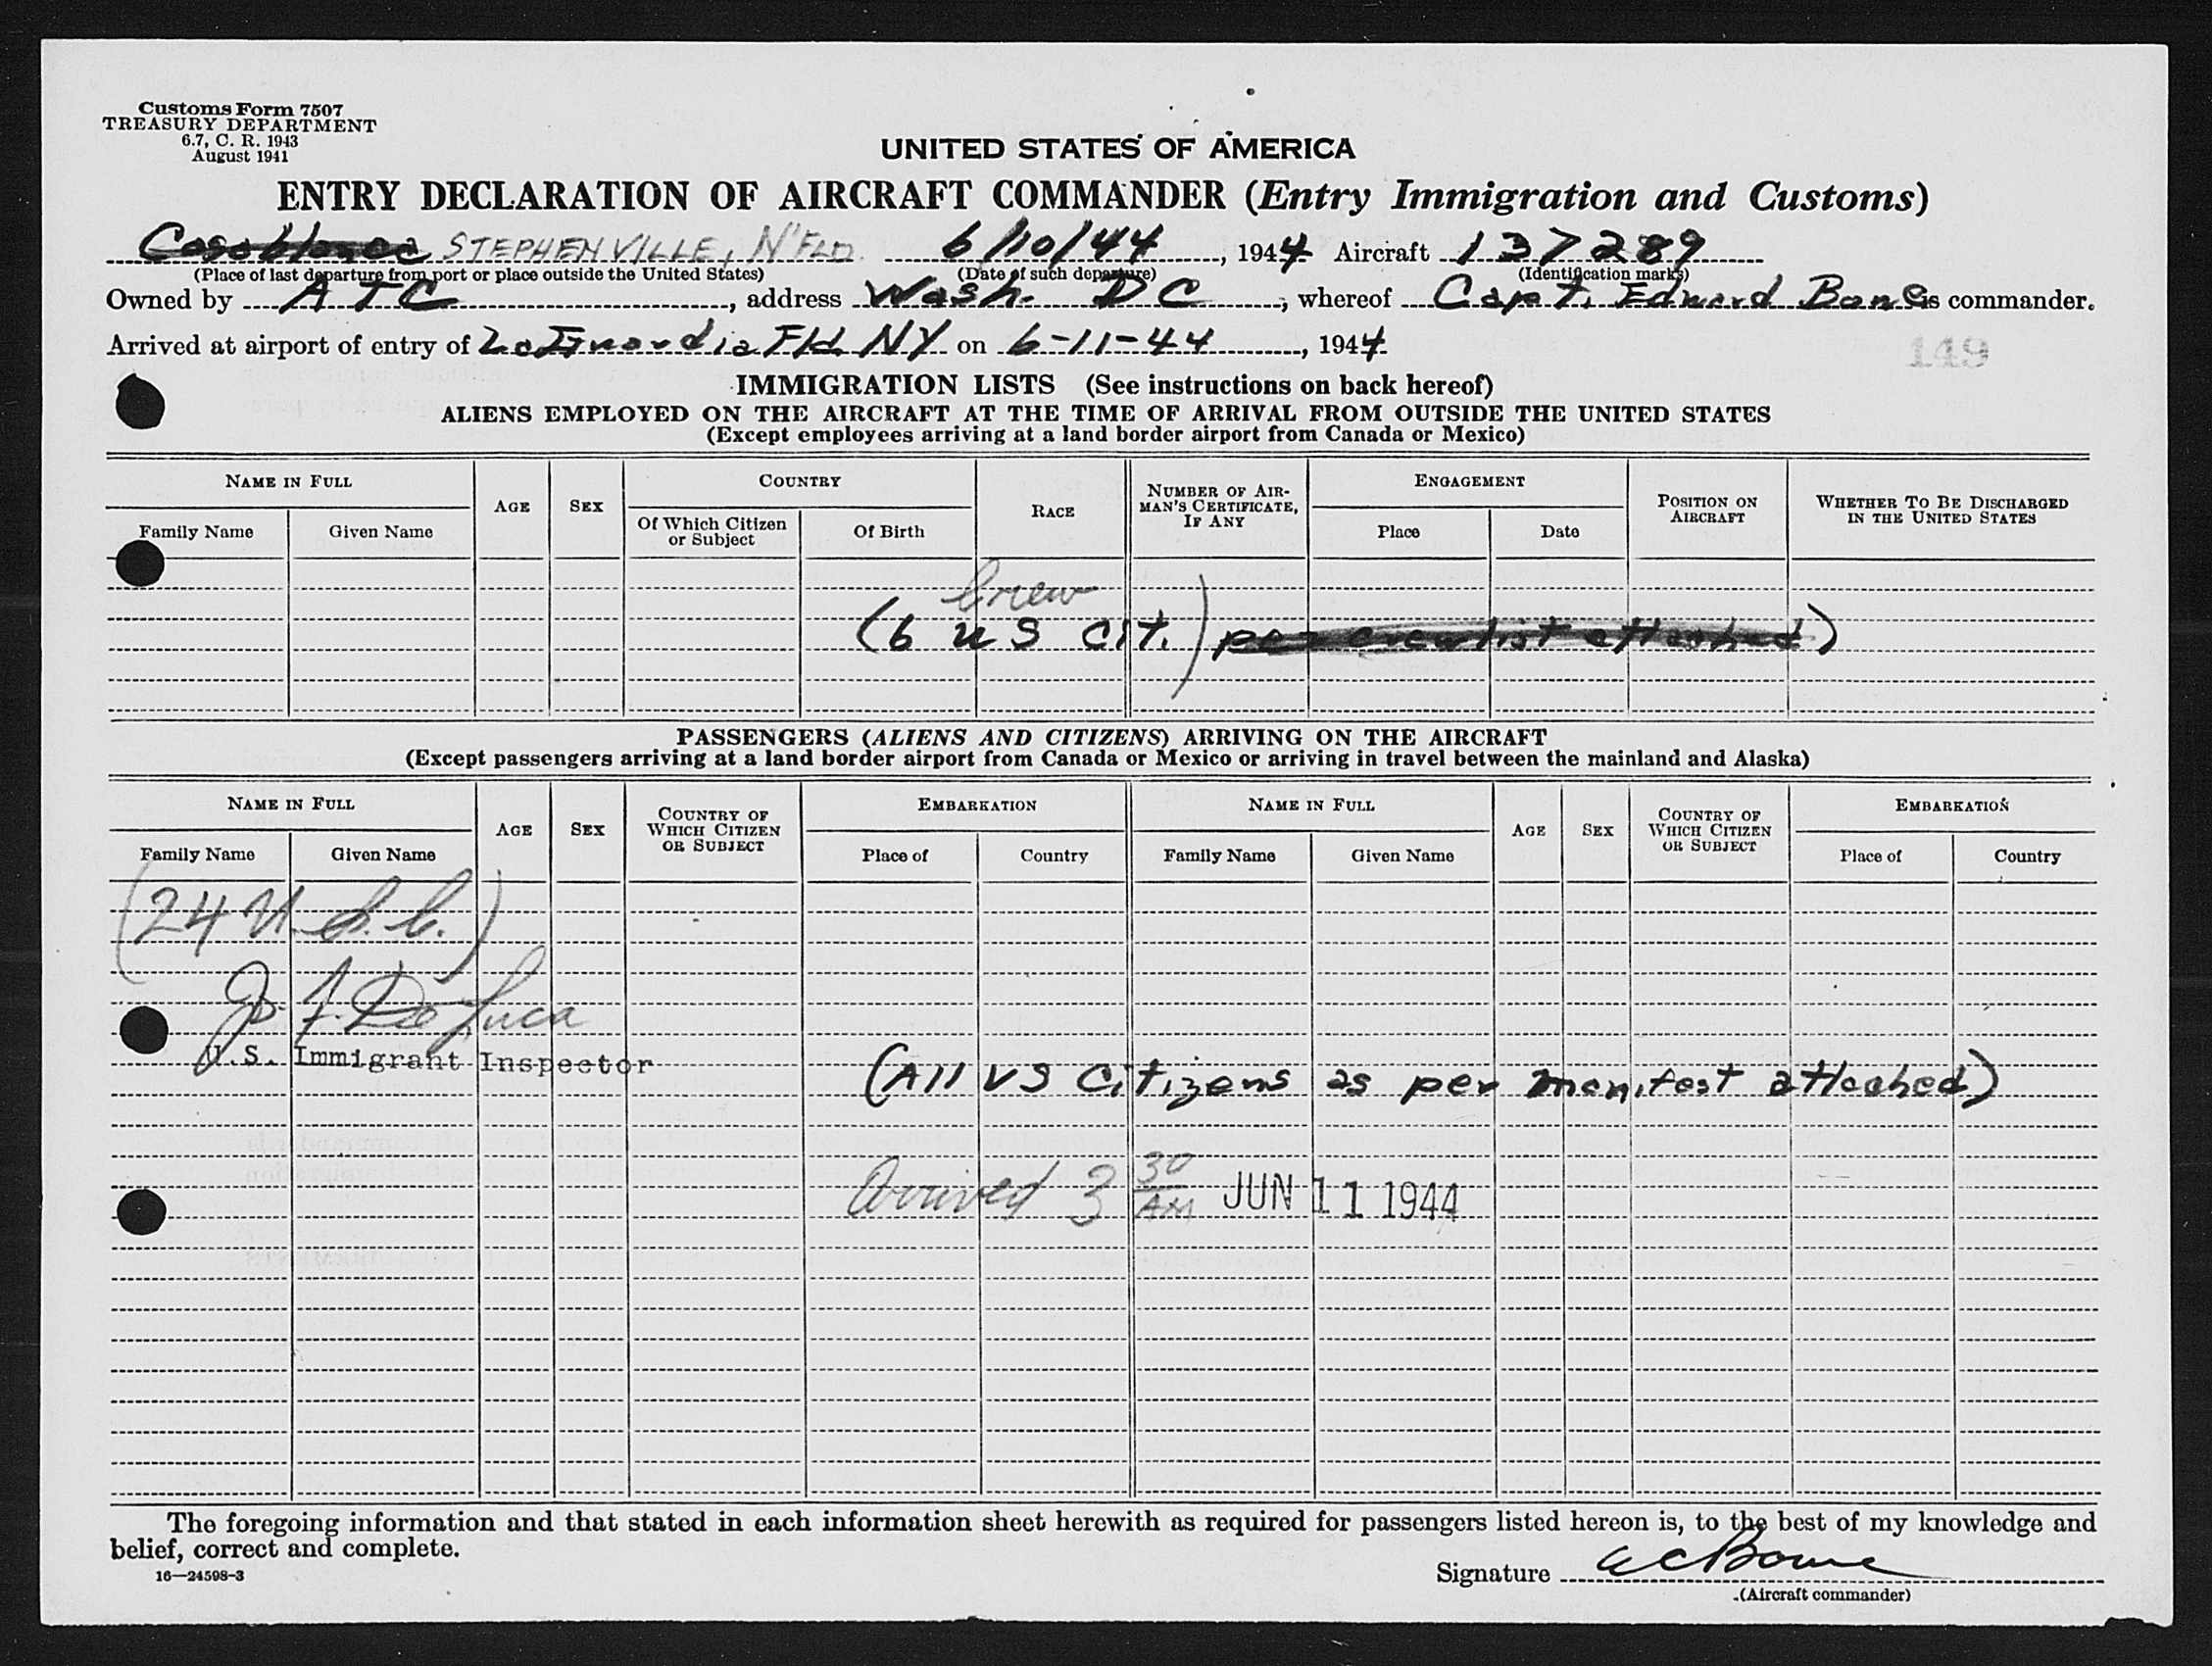 Customs Form 7507
TREASURY DEPARTMENT
6.7, C. R. 1943
August 1941
UNITED STATES OF AMERICA
ENTRY DECLARATION OF AIRCRAFT COMMANDER (Entry Immigration and Customs)
Casablanca STEPHENVILLE, N'FLD. 6/10/44, 1944 Aircraft 137289
(Place of last departure from port or place outside the United States) (Date of such departure) (Identification marks)
Owned by ATC, address Wash. DC; whereof Capt. Edward is commander.
Arrived at airport of entry of LaGuardia Fld NY on 6-11-44, 1944
149
IMMIGRATION LISTS (See instructions on back hereof)
ALIENS EMPLOYED ON THE AIRCRAFT AT THE TIME OF ARRIVAL FROM OUTSIDE THE UNITED STATES
(Except employees arriving at a land border airport from Canada or Mexico)
NAME IN FULL AGE SEX COUNTRY RACE NUMBER OF AIRMAN'S CERTIFICATE, IF ANY ENGAGEMENT POSITION ON AIRCRAFT WHETHER TO BE DISCHARGED IN THE UNITED STATES
Family Name Given Name Of Which Citizen or Subject Of Birth Place Date
Crew
(6 US Cit.) per crew list attached)
PASSENGERS (ALIENS AND CITIZENS) ARRIVING ON THE AIRCRAFT
(Except passengers arriving at a land border airport from Canada or Mexico or arriving in travel between the mainland and Alaska)
NAME IN FULL AGE SEX COUNTRY OF WHICH CITIZEN OR SUBJECT EMBARKATION NAME IN FULL AGE SEX COUNTRY OF WHICH CITIZEN OR SUBJECT EMBARKATION
Family Name Given Name Place of Country Family Name Given Name Place of Country
(24 U.S.C.)
Jo. F. De Luca
U.S. Immigrant Inspector
(All US Citizens as per manifest attached)
Arrived 3 30 AM JUN 11 1944
The foregoing information and that stated in each information sheet herewith as required for passengers listed hereon is, to the best of my knowledge and
belief, correct and complete.
16—24598-3
Signature
(Aircraft commander)